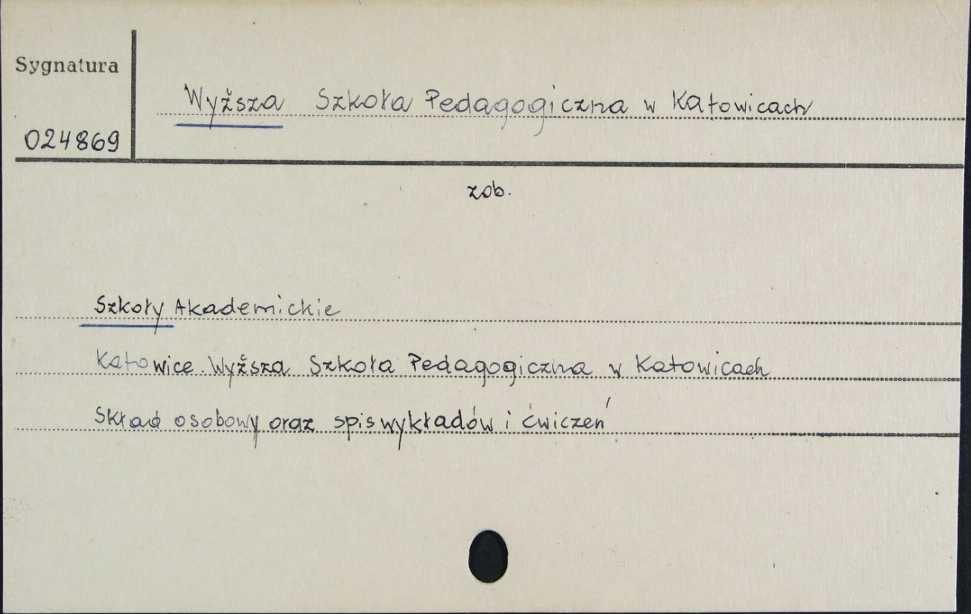 Sygnatura
Wyższa Szkoła Pedagogiczna w Katowicach
024869
zob.
Szkoły Akademickie
Katowice. Wyższa Szkoła Pedagogiczna w Katowicach
Skład osobowy oraz spis wykładów i ćwiczeń